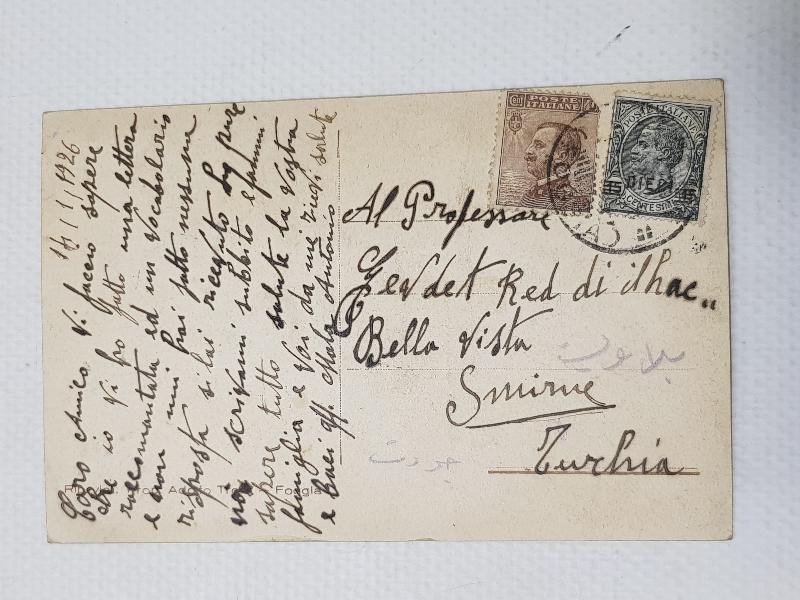 14/1/1926
Caro Amico Vi faccio sapere
che io vi ho fatto una lettera
raccomantata ed un Vocabolario
e non mi hai fatto nessuna
risposta si lai ricevuto
noi scrivami subbito e fammi
sapere tutto salute la Vostra
famiglia e Voi da me ricevi salute
e baci Antonio
POSTE
ITALIANE
POSTE ITALIANE
DIECI
15 15
CENTESIMI
Al Professore
Gevdet Red di ilhac
Bella Vista
بلاويستا
Smirne
جودت
Turchia
Foggia